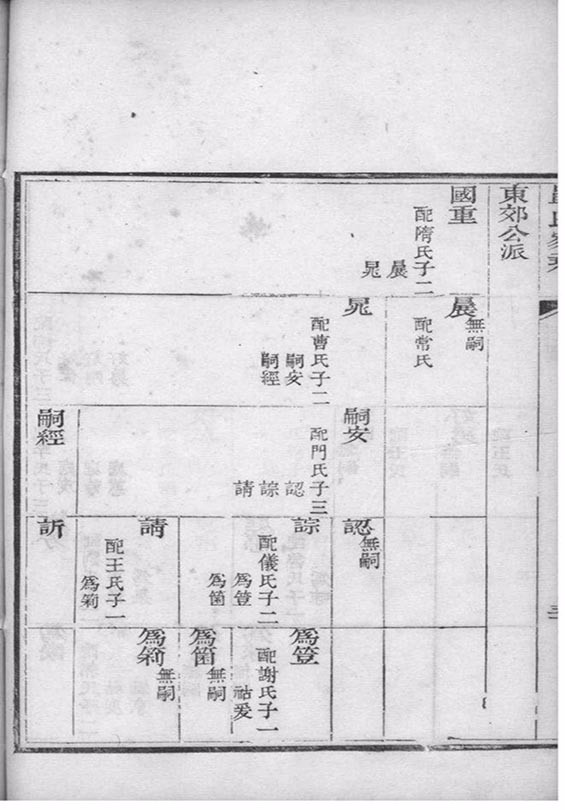 東郊公派
國重
配隋氏子二
晨
晁
晨
無嗣
配常氏
晁
配曹氏子二
嗣安
嗣經
嗣安
配門氏子三
認
諒
請
嗣經
認
無嗣
諒
配儀氏子二
為登
為箇
請
配王氏子一
為菊
訢
為登
配謝氏子一
祜爰
為箇
無嗣
為菊
無嗣